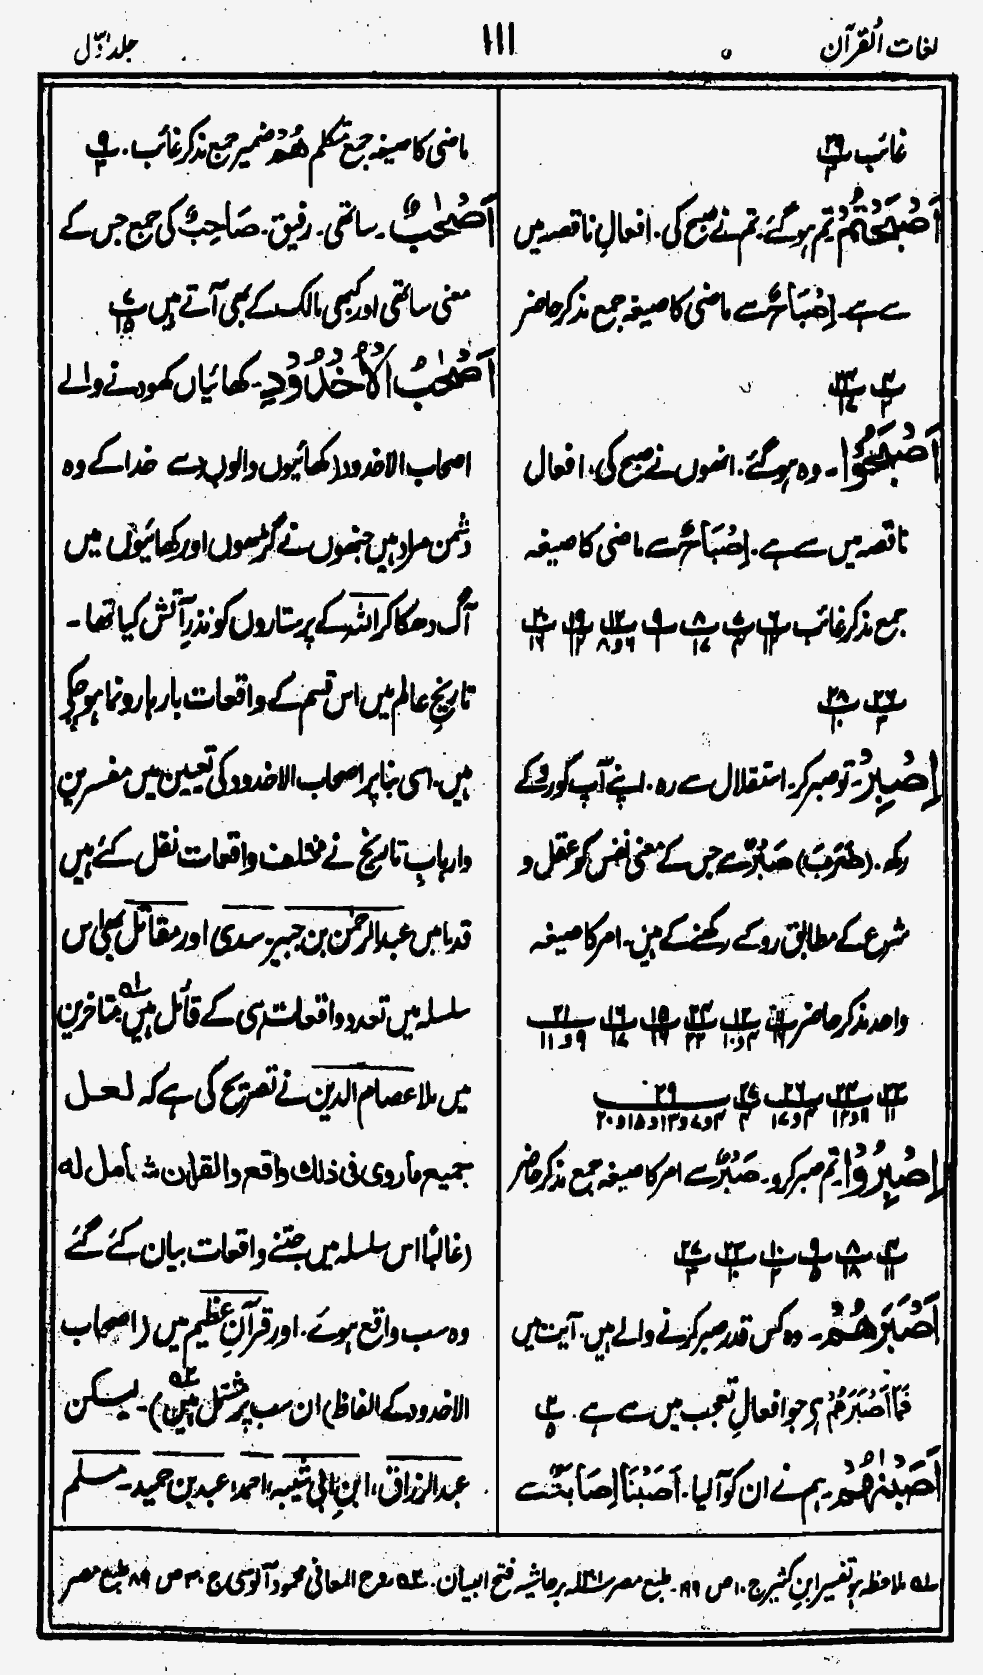 لغات القرآن
۱۱۱
جلد اوّل
غائب پ۲۹/۳
اَصْبَحْتُمْ تم ہو گئے۔ تم نے صبح کی۔ افعالِ ناقصہ میں
سے ہے۔ اِصْبَاحٌ سے ماضی کا صیغہ جمع مذکر حاضر
پ۴/۲ پ۲۴/۱۷
اَصْبَحُوْا۔ وہ ہو گئے۔ انھوں نے صبح کی۔ افعال
ناقصہ میں سے ہے۔ اِصْبَاحٌ سے ماضی کا صیغہ
جمع مذکر غائب پ۶/۱۲ پ۷/۴ پ۸/۱۷ پ۹/۱ پ۱۲/۶و۸ پ۱۹/۱۲ پ۲۰/۱۶
پ۲۶/۳ پ۲۸/۱۰
اِصْبِرْ۔ تو صبر کر۔ استقلال سے رہ۔ اپنے آپ کو روکے
رکھ۔ (ضَرَبَ) صَبْرٌ سے جس کے معنی نفس کو عقل و
شرع کے مطابق روکے رکھنے کے ہیں۔ امر کا صیغہ
واحد مذکر حاضر پ۱۱/۱۶ پ۱۲/۴و۱۰ پ۱۴/۲۲ پ۱۵/۱۶ پ۱۶/۱۷ پ۲۱/۹و۱۱
پ۲۳/۱۱ پ۲۴/۱۱و۱۳ پ۲۶/۴و۱۷ پ۲۷/۴ پ۲۹/۴و۷و۱۳و۱۵و۲۰
اِصْبِرُوْا تم صبر کرو۔ صَبْرٌ سے امر کا صیغہ جمع مذکر حاضر
پ۴/۱۱ پ۸/۱۸ پ۹/۵ پ۱۰/۲ پ۲۳/۱۰ پ۲۷/۳
اَصْبَرَهُمْ۔ وہ کس قدر صبر کرنے والے ہیں۔ آیت میں
فَمَا اَصْبَرَهُمْ ہی جو افعالِ تعجب میں سے ہے۔ پ۲/۵
اَصَبْنٰهُمْ۔ ہم نے ان کو آ لیا۔ اَصَبْنَا اِصَابَۃٌ سے
ماضی کا صیغہ جمع متکلم هُمْ ضمیر جمع مذکر غائب۔ پ۹/۳
اَصْحٰبٌ۔ ساتھی۔ رفیق۔ صَاحِبٌ کی جمع جس کے
معنی ساتھی اور کبھی مالک کے بھی آتے ہیں پ۷/۱۵
اَصْحٰبُ الْاُخْدُوْدِ۔ کھائیاں کھودنے والے
اصحاب الاخدود (کھائیوں والوں) سے خدا کے وہ
دشمن مراد ہیں جنھوں نے گڑھوں اور کھائیوں میں
آگ دھکا کر اللہ کے پرستاروں کو نذرِ آتش کیا تھا۔
تاریخِ عالم میں اس قسم کے واقعات بارہا رونما ہو چکے
ہیں۔ اسی بنا پر اصحاب الاخدود کی تعیین میں مفسرین
و اربابِ تاریخ نے مختلف واقعات نقل کئے ہیں
قدما میں عبدالرحمٰن بن جبیر۔ سدی اور مقاتل بھی اس
سلسلہ میں تعدد واقعات ہی کے قائل ہیں۱ھ متاخرین
میں ملا عصام الدین نے تصریح کی ہے کہ لعل
جمیع ما روی فی ذلک واقع والقرآن شامل له
(غالباً اس سلسلہ میں جتنے واقعات بیان کئے گئے
وہ سب واقع ہوئے۔ اور قرآنِ عظیم میں (اصحاب
الاخدود کے الفاظ) ان سب پر مشتمل ہیں۲ھ)۔ لیکن
عبدالرزاق، ابنِ ابی شیبہ، احمد، عبد بن حمید۔ مسلم
۱ھ ملاحظہ ہو تفسیر ابن کثیر ج ۱۰ ص ۱۹۹۔ طبع مصر بر حاشیہ فتح البیان۔ ۲ھ روح المعانی محمود آلوسی ج ۳۰ ص ۸۹ طبع مصر